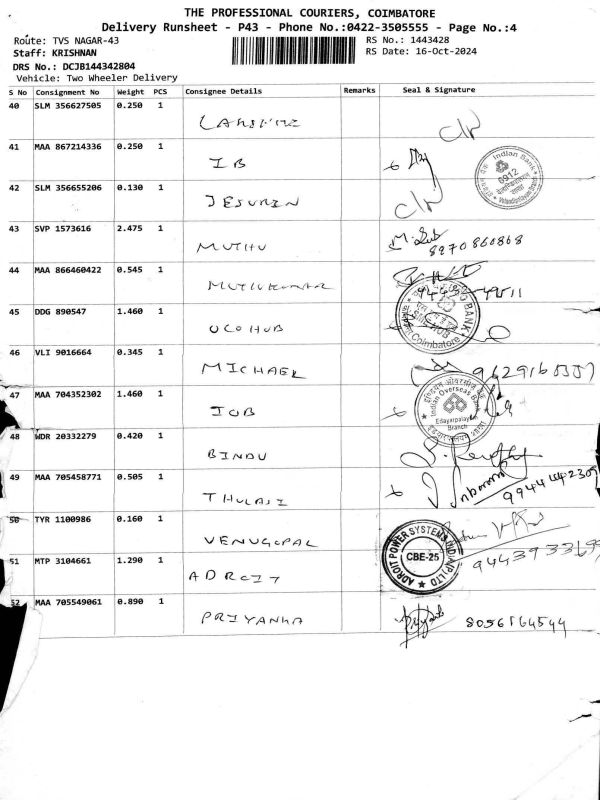 THE PROFESSIONAL COURIERS, COIMBATORE
Delivery Runsheet - P43 - Phone No.:0422-3505555 - Page No.:4
Route: TVS NAGAR-43 RS No.: 1443428
Staff: KRISHNAN RS Date: 16-Oct-2024
DRS No.: DCJB144342804
Vehicle: Two Wheeler Delivery
S No Consignment No Weight PCS Consignee Details Remarks Seal & Signature
40 SLM 356627505 0.250 1
41 MAA 867214336 0.250 1 IB
Indian Bank
0912
42 SLM 356655206 0.130 1 JESURIN
43 SVP 1573616 2.475 1 MUTHU
8970860868
44 MAA 866460422 0.545 1 MUTHUKUMAR
45 DDG 890547 1.460 1 UCO HUB
BANK
Coimbatore
46 VLI 9016664 0.345 1 MICHAEL
47 MAA 704352302 1.460 1 IOB
Indian Overseas Bank
Edayarpalayam
Branch
48 WDR 20332279 0.420 1 BINDU
49 MAA 705458771 0.505 1 THULASI
50 TYR 1100986 0.160 1 VENUGOPAL
51 MTP 3104661 1.290 1 ADROIT
ADROIT POWER SYSTEMS INDIA (P) LTD
CBE-25
52 MAA 705549061 0.890 1 PRIYANKA
8056164544